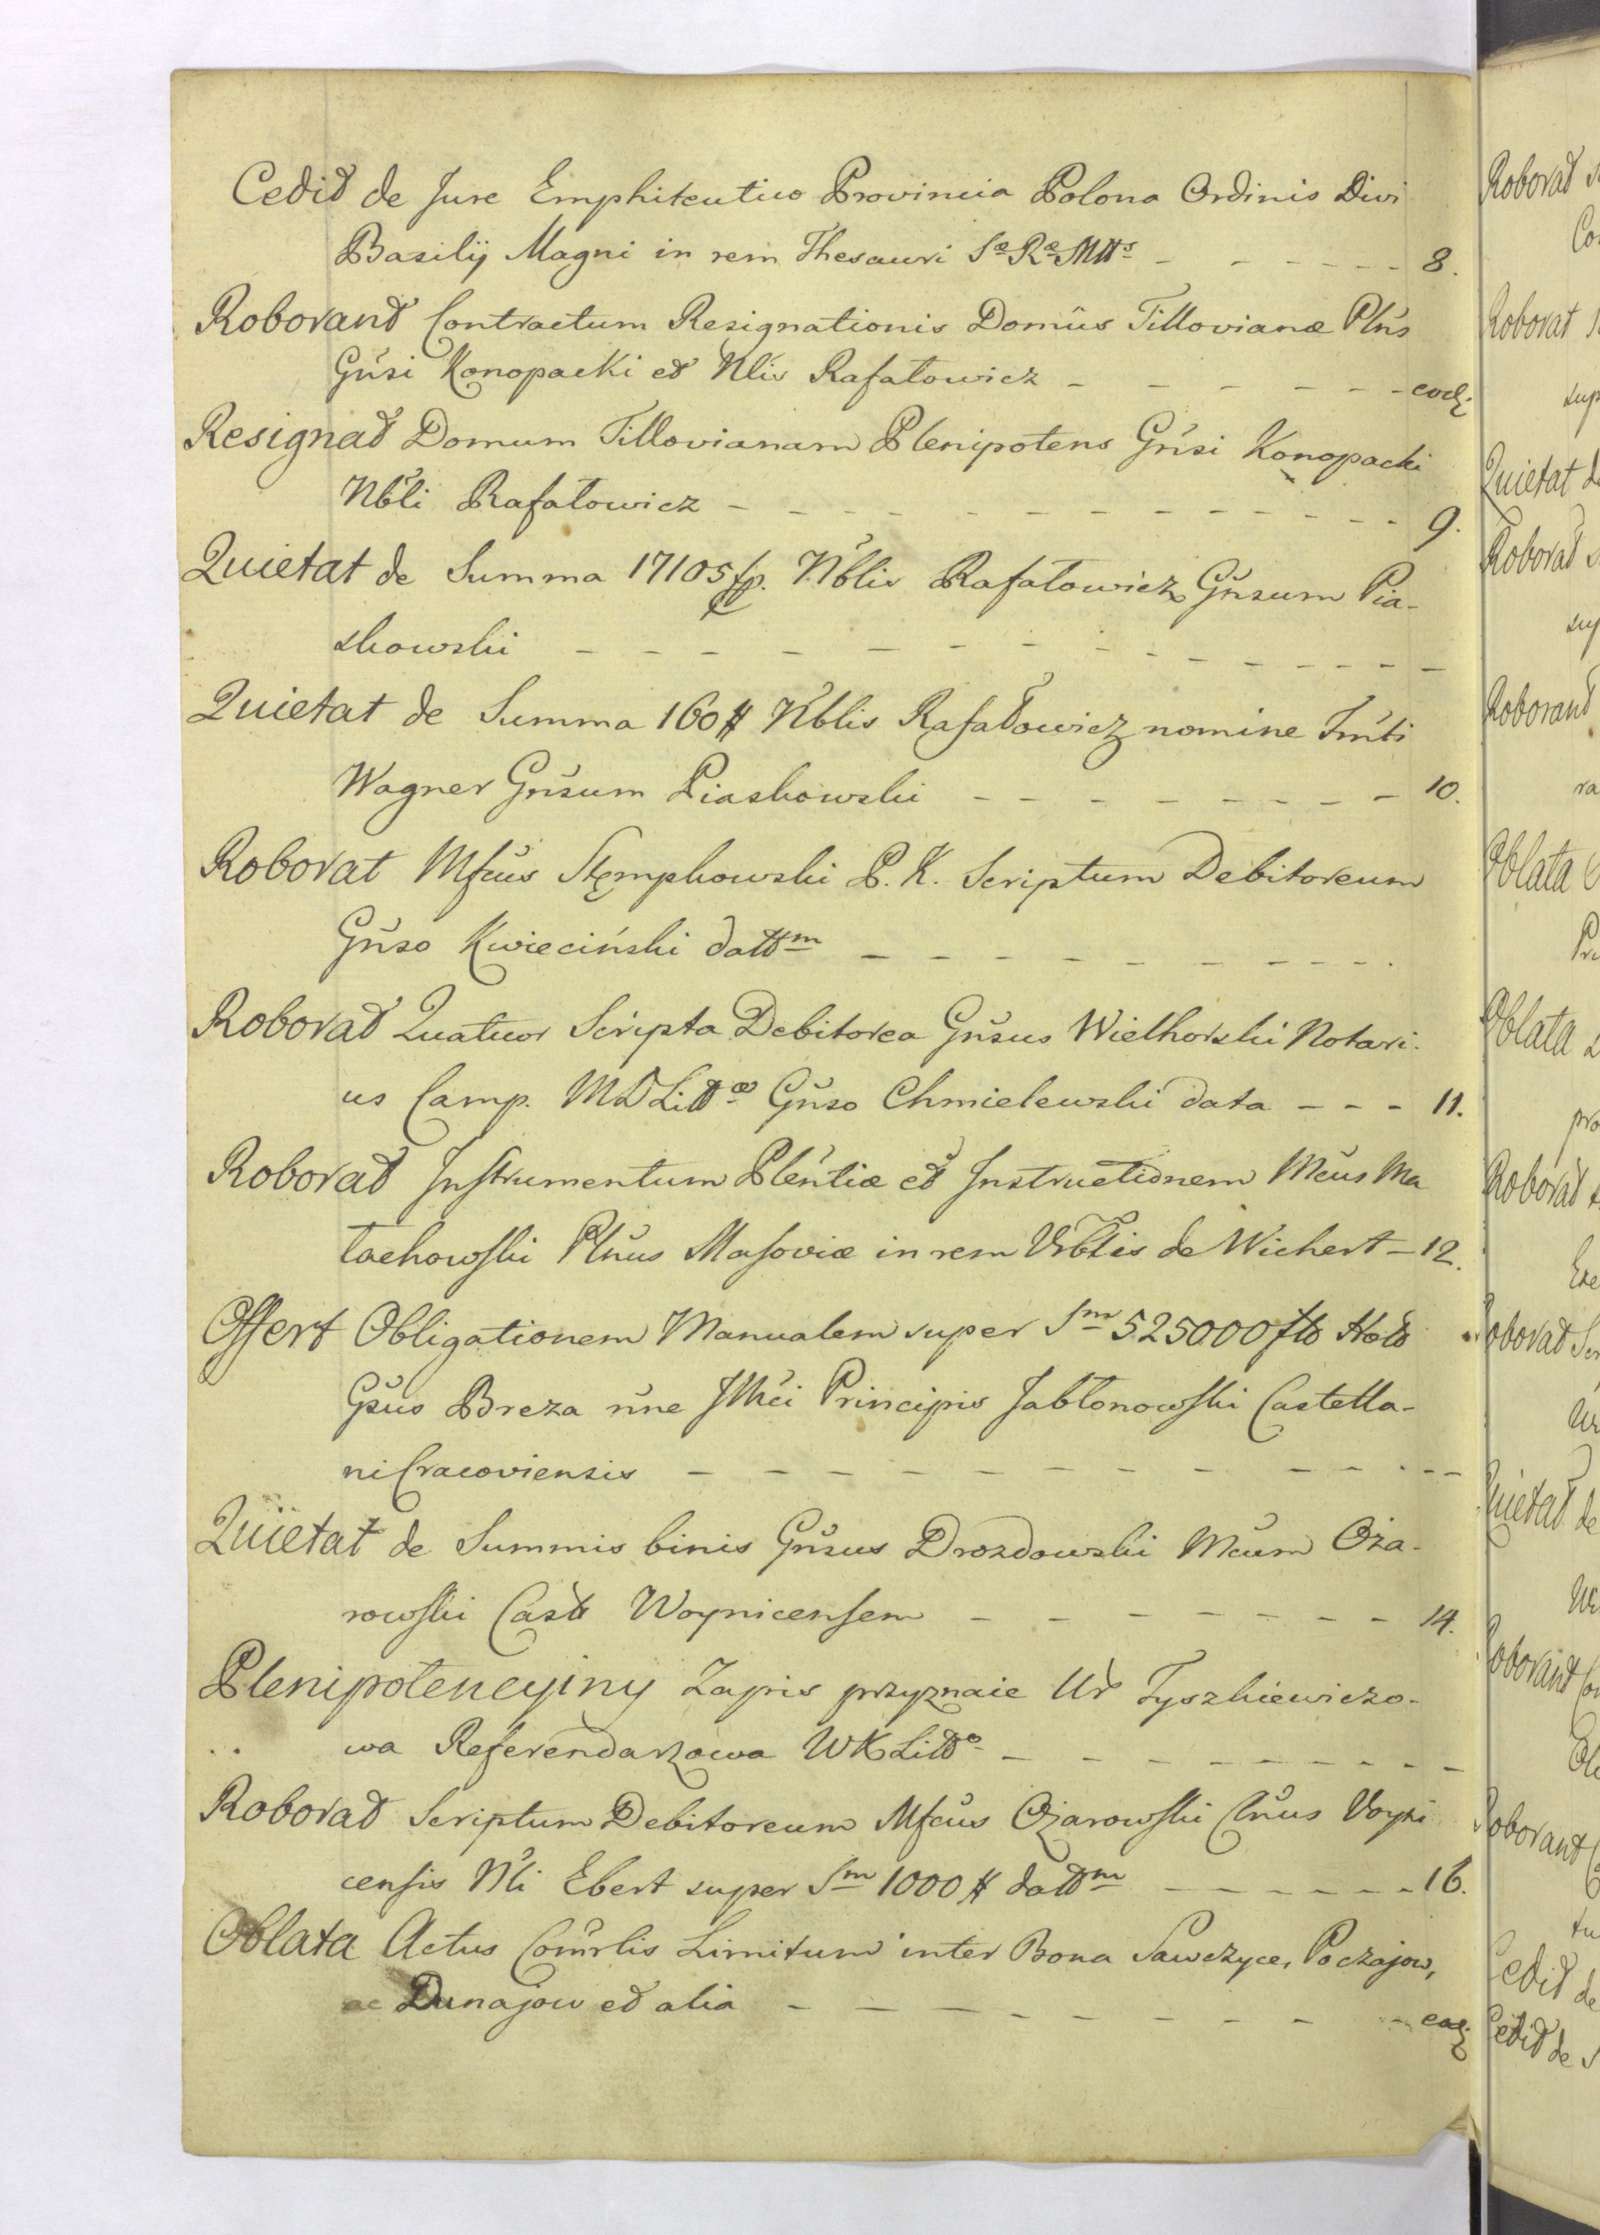 Cedit de Jure Emphiteutico Provincia Polona Ordinis Divi
Basilij Magni in rem Thesauri Sæ Ræ Mtts - - - - - - 8.
Roborant Contractum Resignationis Domûs Tillovianæ Pltńs
Gńsi Konopacki et Nlis Rafałowicz - - - - - - eod:
Resignat Domum Tillovianam Plenipotens Gńsi Konopacki
Nbli Rafałowicz - - - - - - - - - - - - 9.
Quietat de Summa 17105 fp. Nblis Rafałowicz Gńsum Pia-
skowski - - - - - - - - - - - - -
Quietat de Summa 160 # Nblis Rafałowicz nomine Fmti
Wagner Gńsum Piaskowski - - - - - - - - 10.
Roborat Mfcus Stępkowski P. K. Scriptum Debitoreum
Gńso Kwieciński dattm - - - - - - - - - -
Roborat Quatuor Scripta Debitorea Gńsus Wielhorski Notari-
us Camp. MDLittæ Gńso Chmielewski data - - - 11.
Roborat Instrumentum Plentiæ et Instructionem Mcus Ma
łachowski Pltnus Masoviæ in rem Urblis de Wickert - 12.
Offert Obligationem Manualem super Sm 525000 fto Holo
Gsus Breza nne Jllmci Principis Jabłonowski Castella-
ni Cracoviensis - - - - - - - - - - - - -
Quietat de Summis binis Gńsus Drozdowski Mcum Oża-
rowski Castt Woynicensem - - - - - - - - 14.
Plenipotencyiny Zapis przyznaie Ur Tyszkiewiczo-
wa Referendarzowa WXLitto - - - - - - - - -
Roborat Scriptum Debitoreum Mfcus Ożarowski Cńus Voyni
censis Nli Ebert super Sm 1000 # dattm - - - - - - 16.
Oblata Actus Comrlis Limitum inter Bona Sawczyce, Poczajow,
ac Dunajow et alia - - - - - - - - - eod: